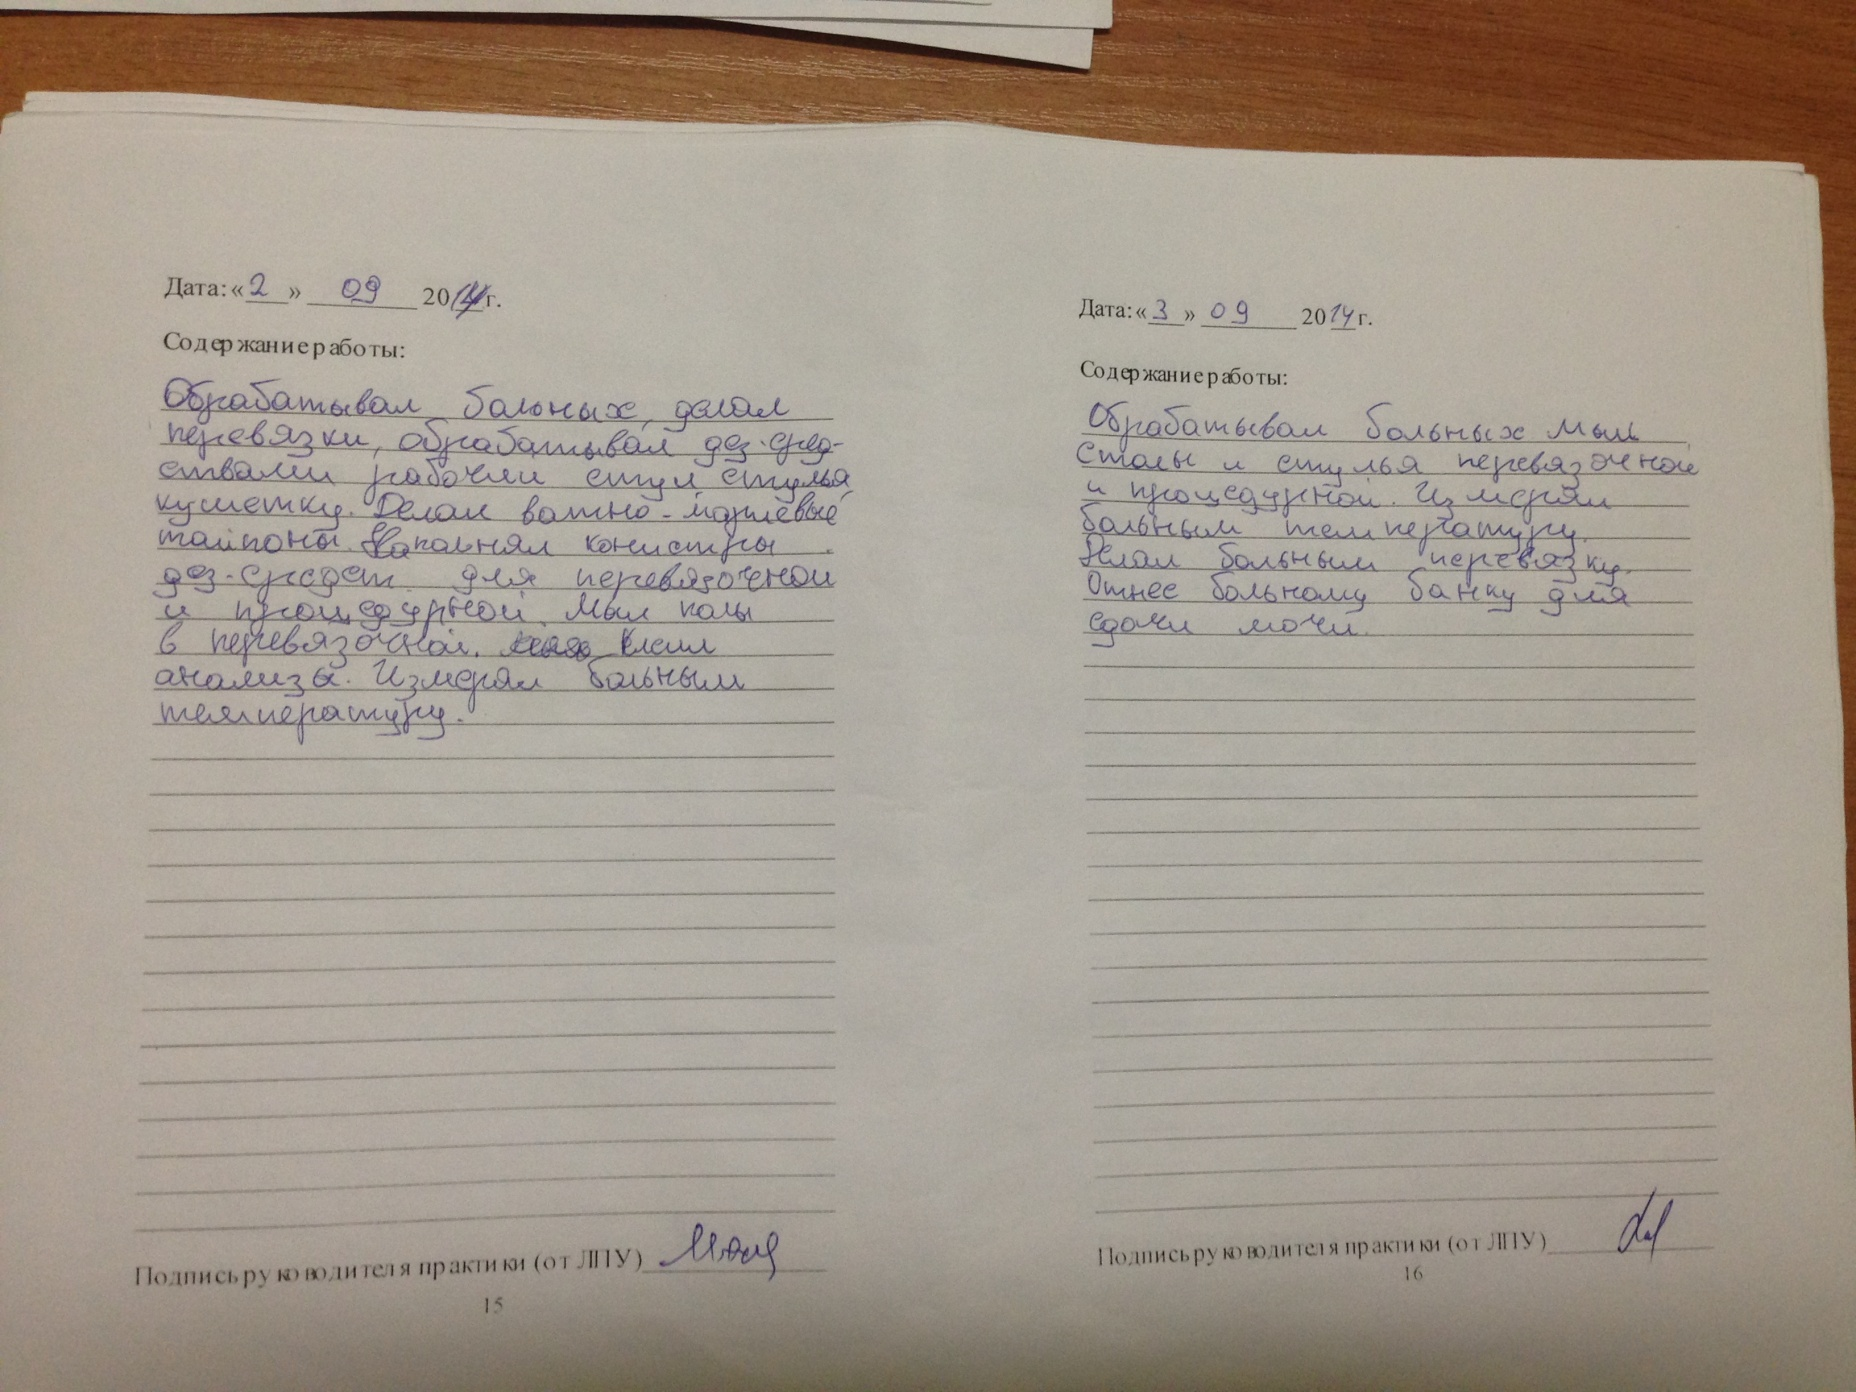 Дата: «2» 09 2014 г.
Содержание работы:
Обрабатывал больных, делал
перевязки, обрабатывал дез-сред-
ствами рабочий стул стулья,
кушетку. Делал ватно-марлевые
тампоны. Наполнял конистры
дез-средст. для перевязочной
и процедурной. Мыл полы
в перевязочной. Клеил
анализы. Измерял больным
температуру.
Подпись руководителя практики (от ЛПУ)
15
Дата: «3» 09 2014 г.
Содержание работы:
Обрабатывал больных мыл
столы и стулья перевязочной
и процедурной. Измерял
больным температуру.
больным перевязку.
Отнес больному банку для
сдачи мочи.
Подпись руководителя практики (от ЛПУ)
16